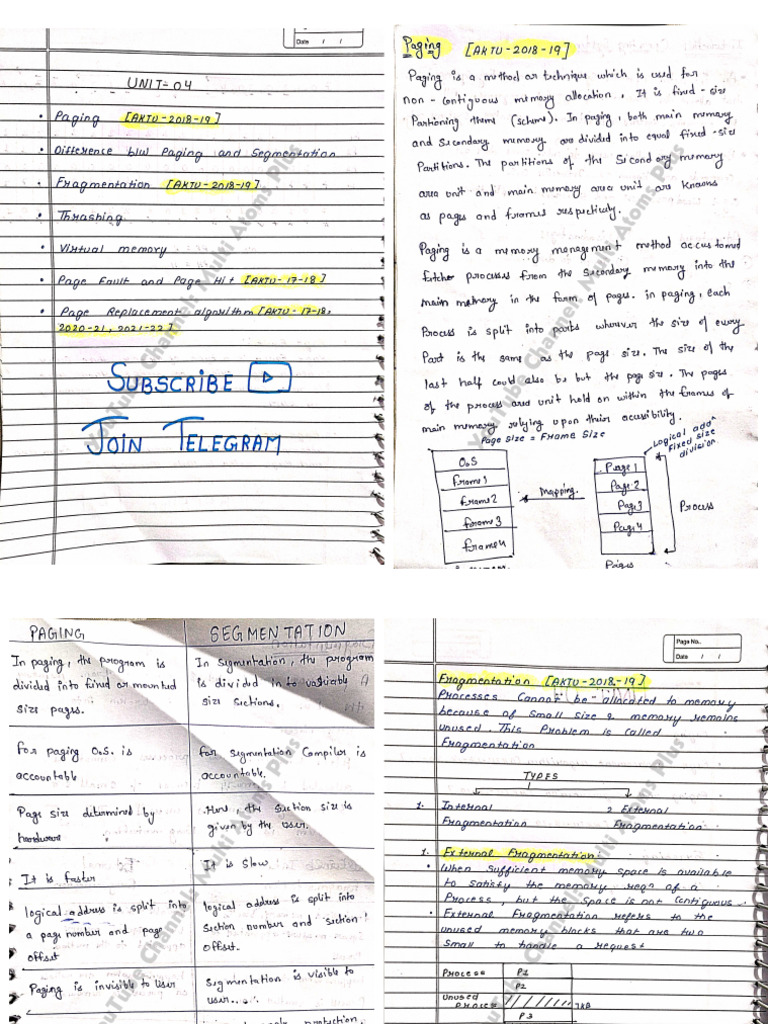 Date / /
UNIT-04
• Paging [AKTU-2018-19]
• Difference b/w Paging and Segmentation
• Fragmentation [AKTU-2018-19]
• Thrashing
• Virtual memory
• Page Fault and Page Hit [AKTU-17-18]
• Page Replacement algorithm [AKTU-17-18,
2020-21, 2021-22]
SUBSCRIBE
JOIN TELEGRAM
YouTube Channel: Multi Atoms Plus
Paging [AKTU-2018-19]
Paging is a method or technique which is used for
non-contiguous memory allocation. It is fixed-size
Partioning theme (scheme). In paging, both main memory
and secondary memory are divided into equal fixed-size
Partitions. The partitions of the Secondary memory
area unit and main memory area unit are known
as pages and frames respectively.
Paging is a memory management method accustomed
fetcher processes from the Secondary memory into the
main memory in the form of pages. in paging, each
Process is split into parts wherever the size of every
Part is the same as the page size. The size of the
last half could also be but the page size. The pages
of the process area unit hold on within the frames of
main memory relying upon their accessibility.
Page Size = Frame Size
Logical add^n
fixed size
division
O.S
frame 1
frame 2
frame 3
frame 4
Mapping.
Page 1
Page 2
Page 3
Page 4
Process
Pages
YouTube Channel: Multi Atoms Plus
PAGING SEGMENTATION
In paging, the program is
divided into fixed or mounted
size pages.
In segmentation, the program
is divided in to variable
size sections.
for paging O.S. is
accountable
for segmentation Compiler is
accountable.
Page size determined by
hardware
Here, the section size is
given by the user.
It is faster
It is slow.
logical address is split into
a page number and page
offset
logical address is split into
section number and section
offset.
Paging is invisible to User
segmentation is visible to
user.
protection,
YouTube Channel: Multi Atoms Plus
Page No..
Date / /
Fragmentation [AKTU-2018-19]
Processes Cannot be allocated to memory
because of small size & memory remains
unused. This Problem is called
Fragmentation
TYPES
1. Internal
Fragmentation
2 External
Fragmentation.
1. External Fragmentation:
• When sufficient memory space is available
to satisfy the memory req^n of a
Process, but the space is not contiguous.
• External Fragmentation refers to the
unused memory blocks that are two
Small to handle a request
Process P1
P2
Unused
Process 3KB
P3
YouTube Channel: Multi Atoms Plus